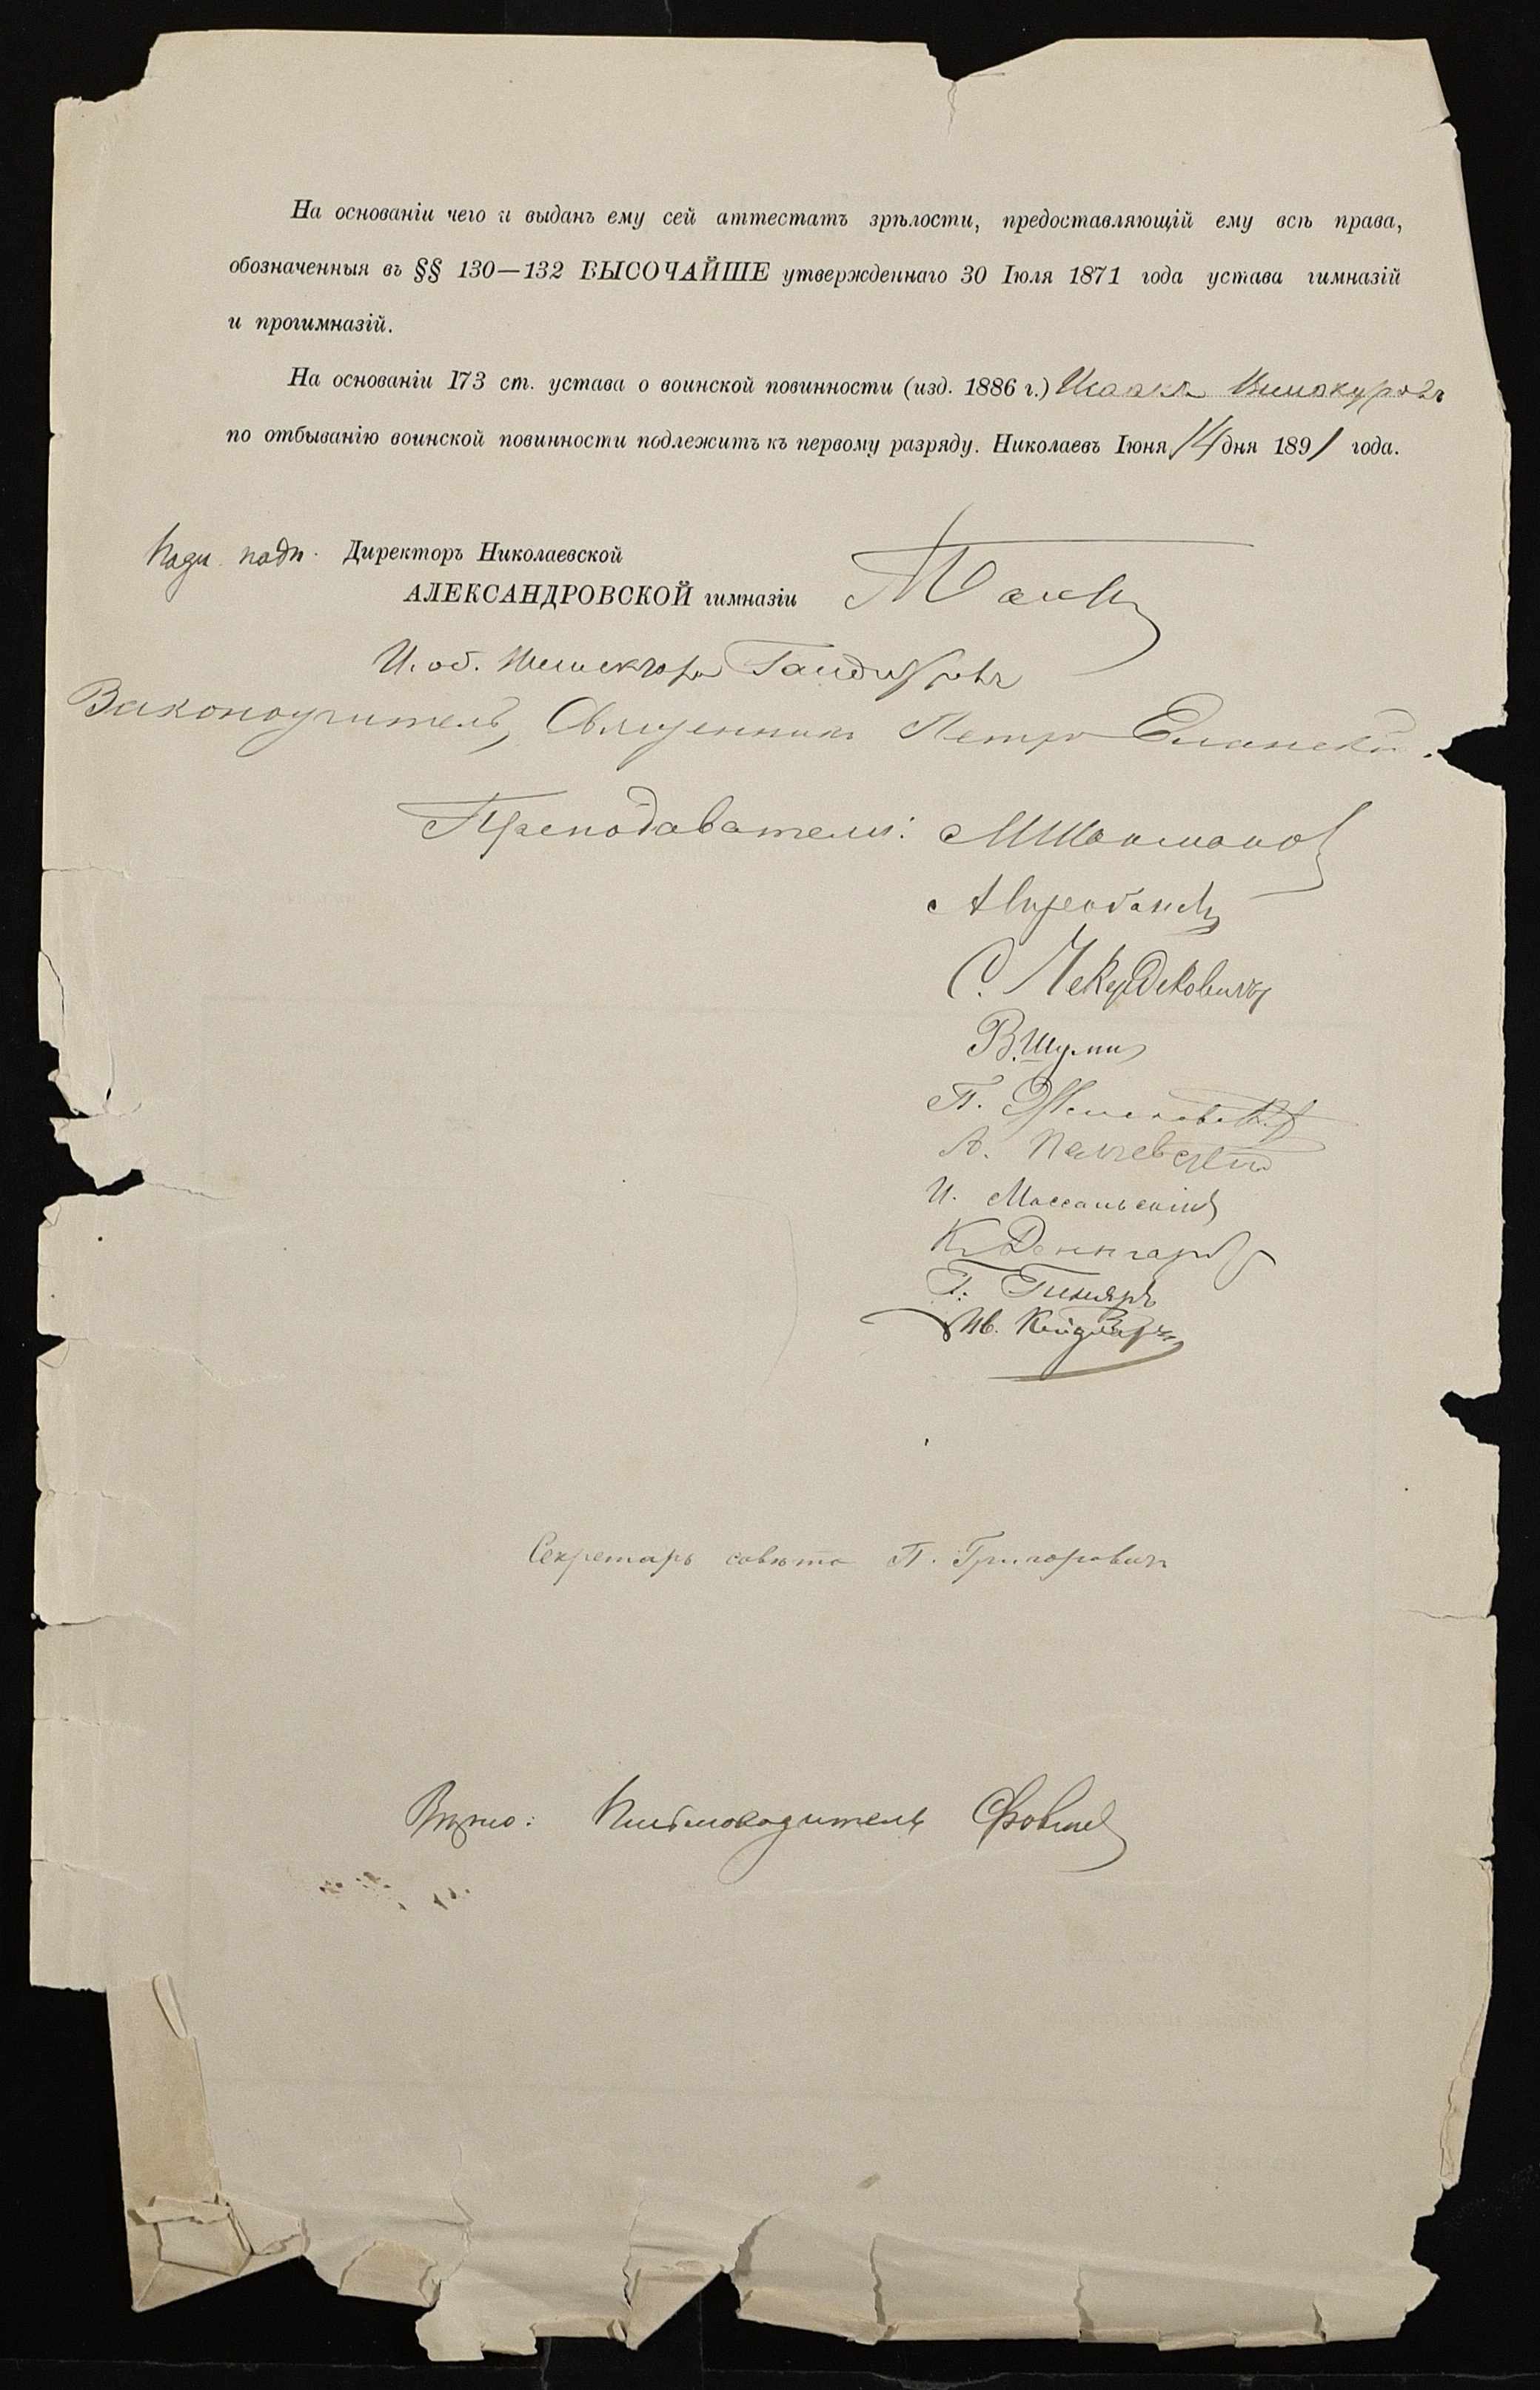 На основаніи чего и выданъ ему сей аттестатъ зрѣлости, предоставляющій ему всѣ права,
обозначенныя въ §§ 130—132 ВЫСОЧАЙШЕ утвержденнаго 30 Іюля 1871 года устава гимназій
и прогимназій.
На основаніи 173 ст. устава о воинской повинности (изд. 1886 г.) Исаакъ Винокуровъ
по отбыванію воинской повинности подлежитъ къ первому разряду. Николаевъ Іюня 14 дня 1891 года.
Директоръ Николаевской
АЛЕКСАНДРОВСКОЙ гимназіи
И. об. Инспектора
Законоучитель, Священникъ Петръ Еланскій.
Преподаватели:
В. Шумин
И. Массальскій
Секретарь совѣта П. Григоровичъ
Вѣрно: Письмоводитель